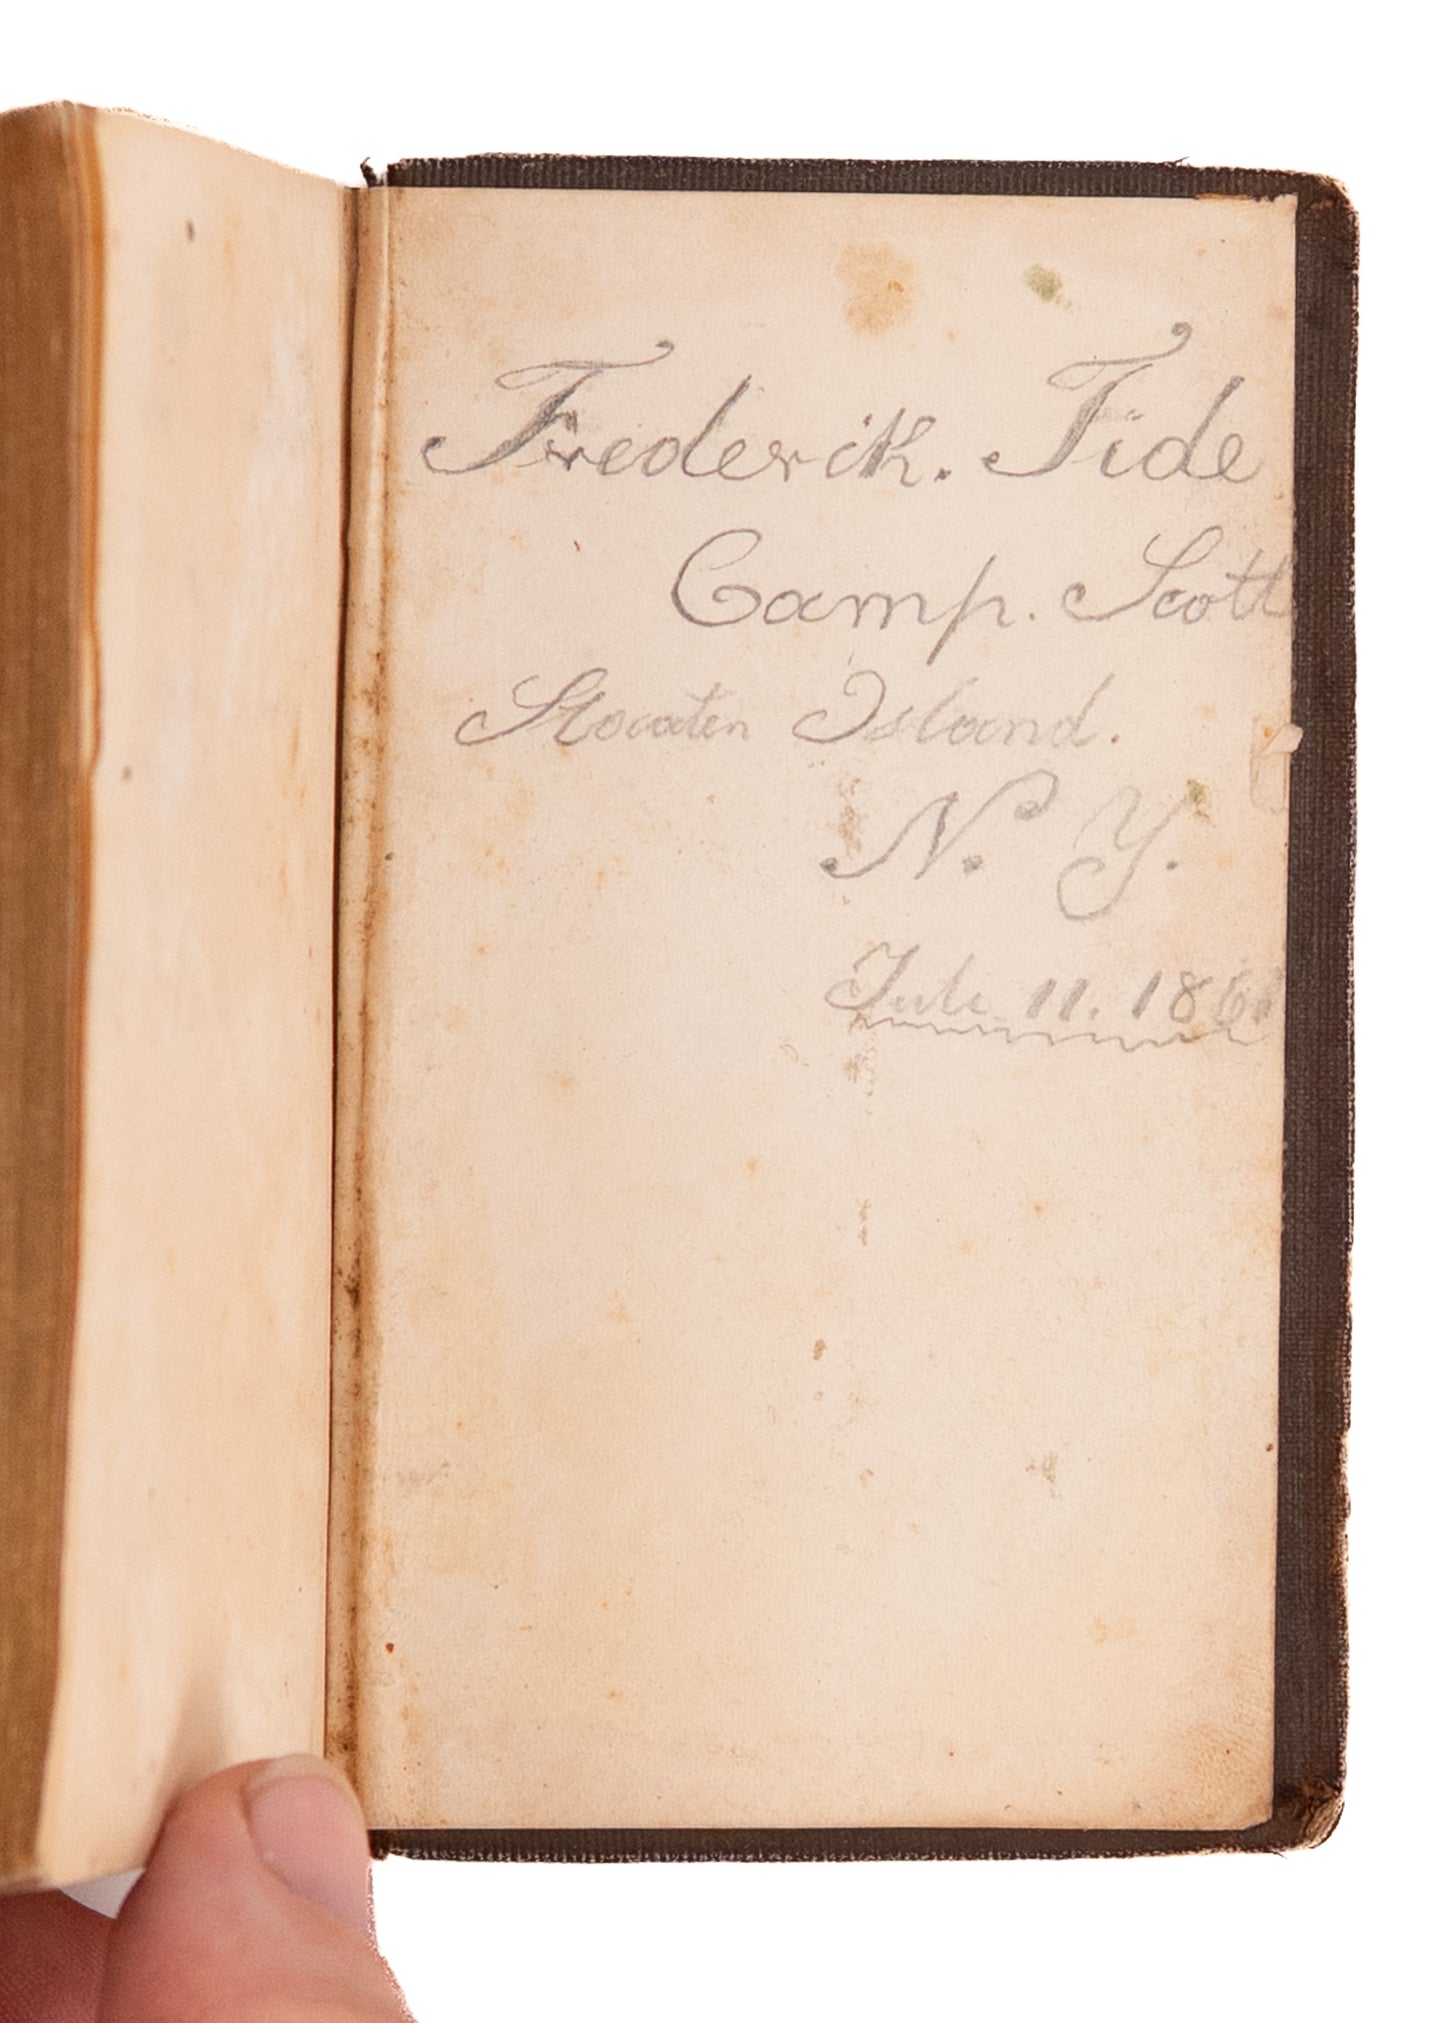 Frederik. Tide
Camp. Scott
Staaten Island.
N. Y.
Juli 11. 1861